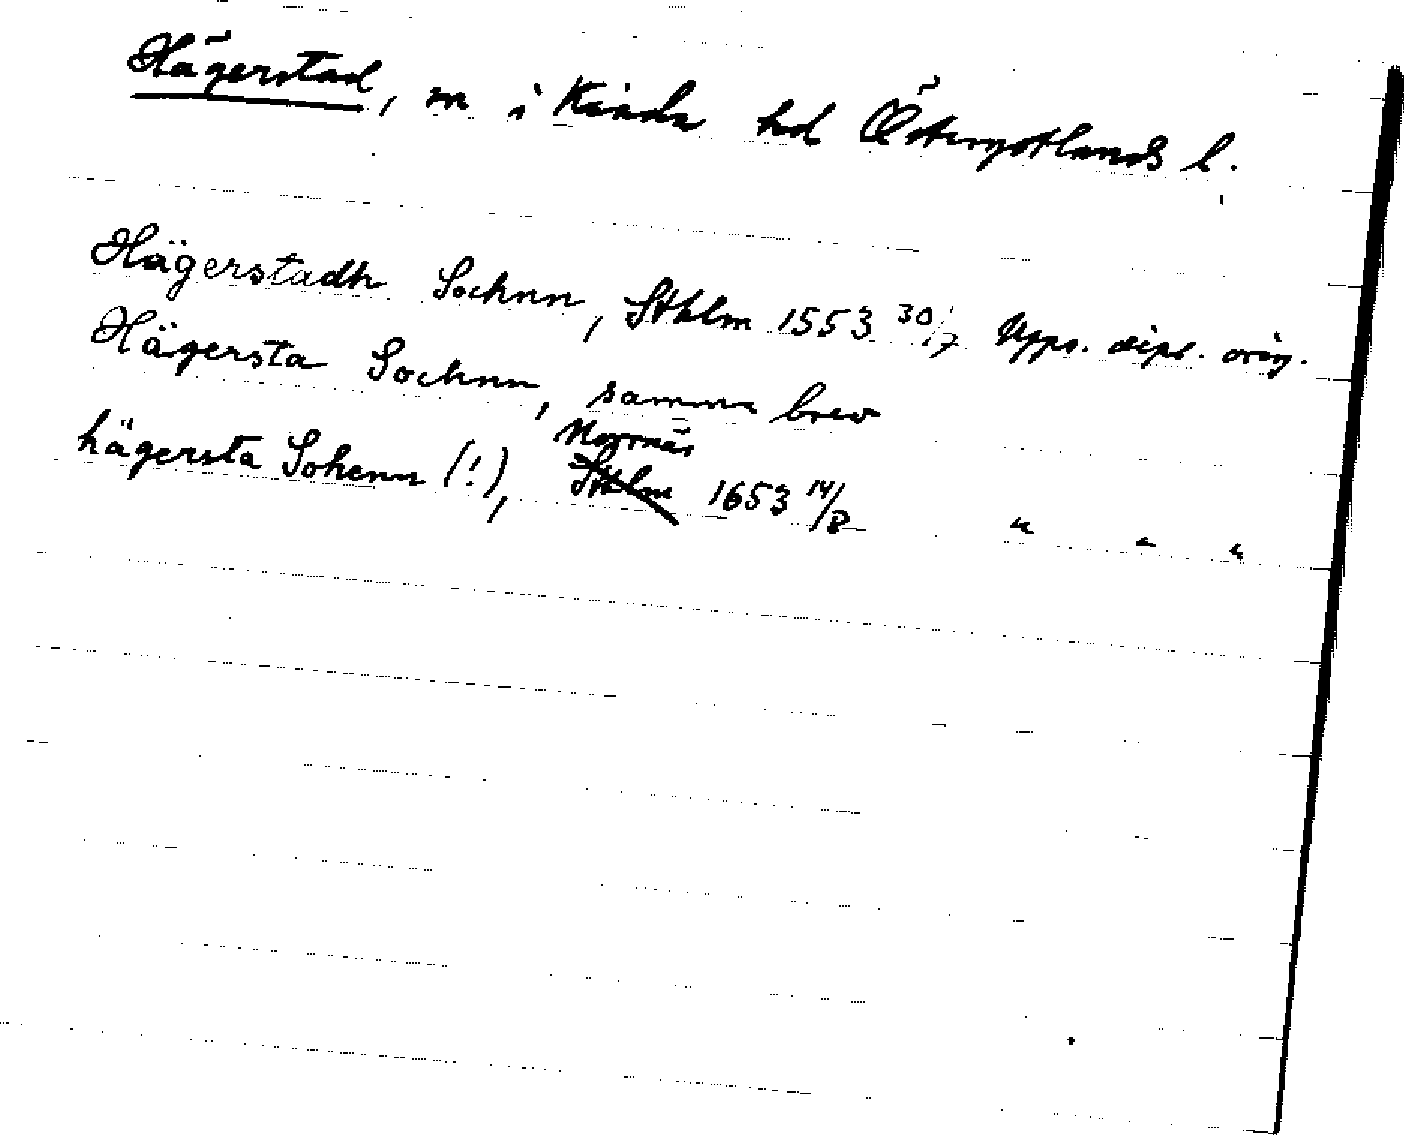 Hägerstad, sn i Kinda hd Östergötlands l.
Hägerstadh Sochnn, Sthlm 1553 30/7 Upps. dipl. orig.
Hägersta Sochnn, samma brev
Norrnäs
hägersta Sohenn (!), Sthlm 1653 14/8 " " "